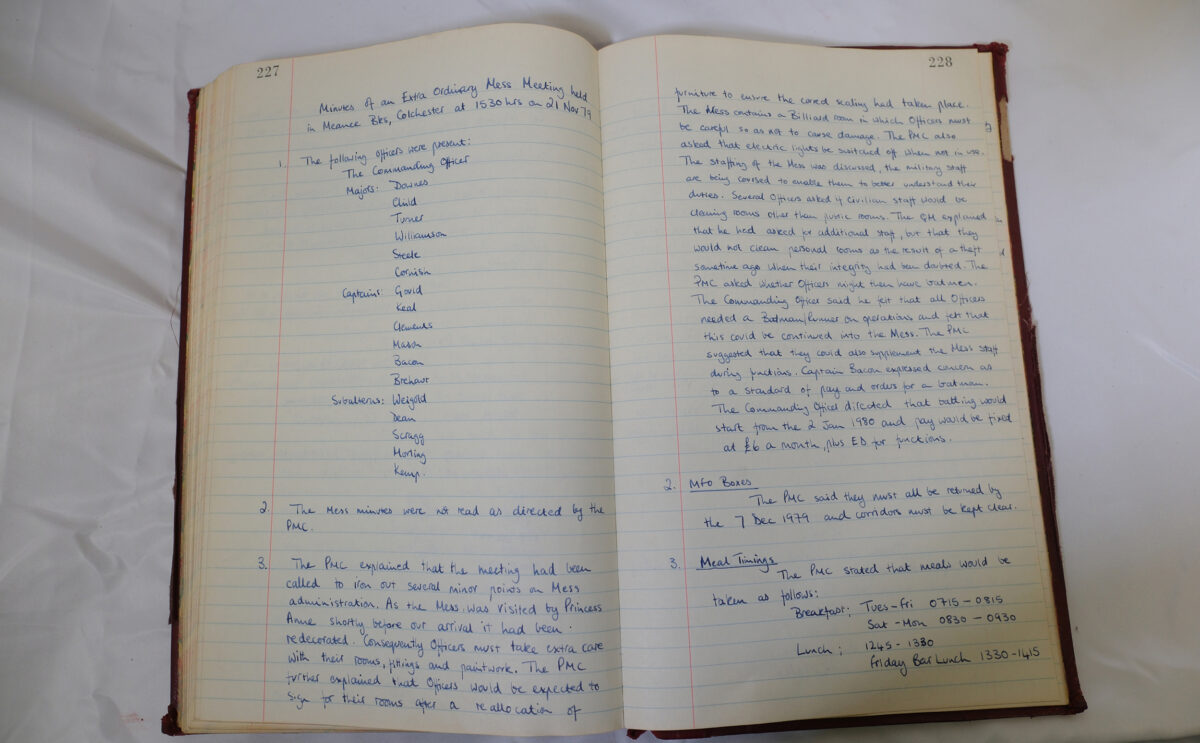 227
Minutes of an Extra Ordinary Mess Meeting held
in Meanee Bks, Colchester at 1530 hrs on 21 Nov 79
1. The following officers were present:
The Commanding Officer
Majors: Downes
Child
Turner
Williamson
Steele
Cornish
Captains: Govid
Keal
Clements
Mason
Bacon
Brehaut
Subalterns: Weigold
Dean
Scragg
Morling
Kemp.
2. The Mess minutes were not read as directed by the
PMC.
3. The PMC explained that the meeting had been
called to iron out several minor points on Mess
administration. As the Mess was visited by Princess
Anne shortly before our arrival it had been
redecorated. Consequently Officers must take extra care
with their rooms, fittings and paintwork. The PMC
further explained that Officers would be expected to
sign for their rooms after a reallocation of
228
furniture to ensure the correct scaling had taken place.
The Mess contains a Billiard room in which Officers must
be careful so as not to cause damage. The PMC also
asked that electric lights be switched off when not in use.
The staffing of the Mess was discussed, the military staff
are being coursed to enable them to better understand their
duties. Several Officers asked if Civilian staff would be
cleaning rooms other than public rooms. The QM explained
that he had asked for additional staff, but that they
would not clean personal rooms as the result of a theft
sometime ago when their integrity had been doubted. The
PMC asked whether Officers might then have batmen.
The Commanding Officer said he felt that all Officers
needed a Batman/Runner on operations and felt that
this could be continued into the Mess. The PMC
suggested that they could also supplement the Mess staff
during functions. Captain Bacon expressed concern as
to a standard of pay and orders for a batman.
The Commanding Officer directed that batting would
start from the 2 Jan 1980 and pay would be fixed
at £6 a month, plus ED for functions.
2. MFO Boxes
The PMC said they must all be returned by
the 7 Dec 1979 and corridors must be kept clear.
3. Meal Timings
The PMC stated that meals would be
taken as follows:
Breakfast: Tues-Fri 0715-0815
Sat-Mon 0830-0930
Lunch: 1245-1330
Friday Bar Lunch 1330-1415